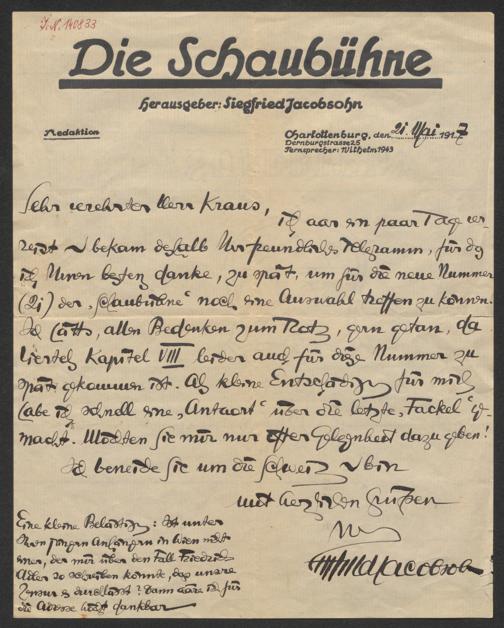 J.N. 140833
Die Schaubühne
Herausgeber: Siegfried Jacobsohn
Redaktion
Charlottenburg, den 21. Mai 1917
Dernburgstrasse 25
Fernsprecher: Wilhelm 1943
Sehr verehrter Herr Kraus,
ich war ein paar Tage ver-
reist u bekam deshalb Ihr freundliches Telegramm, für das
ich Ihnen bestens danke, zu spät, um für die neue Nummer
(21) der „Schaubühne" noch eine Auswahl treffen zu können.
Ich hätts, allen Bedenken zum Trotz, gern getan, da
Kapitel VIII leider auch für diese Nummer zu
spät gekommen ist. Als kleine Entschädigung für mich
habe ich schnell eine „Antwort" über die letzte „Fackel" ge-
macht. Möchten Sie mir nur öfter Gelegenheit dazu geben!
Ich beneide Sie um die Schweiz u bin
mit herzlichen Grüßen
Ihr
Siegfried Jacobsohn
Eine kleine Belästigung: Ist unter
Ihren jungen Anhängern in Wien nicht
einer, der mir über den Fall Friedrich
Adler so schreiben könnte, daß unsre
Zensur es durchlässt? Dann wäre ich für
die Adresse höchst dankbar